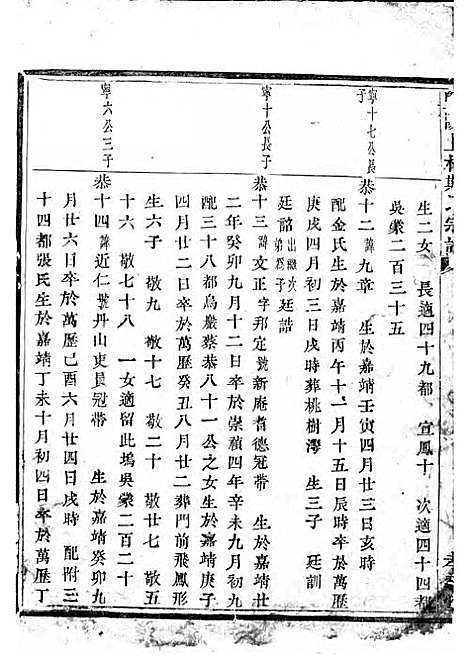 生二女 長適四十九都 宣鳳十 次適四十四都
吳棠二百三十五
寧十七公長子
恭十二諱九章 生於嘉靖壬寅四月廿三日亥時
配金氏生於嘉靖丙午十一月十五日辰時卒於萬歷
庚戌四月初三日戌時葬桃樹灣 生三子 廷訓
廷詔出繼次弟為子 廷誥
寧十公長子
恭十三諱文正字邦定號新庵耆德冠帶 生於嘉靖廿
二年癸卯九月十二日卒於崇禎四年辛未九月初九
配三十八都烏巖蔡恭八十一公之女生於嘉靖庚子
四月廿二日卒於萬歷癸丑八月廿二葬門前飛鳳形
生六子 敬九 敬十七 敬二十 敬廿七 敬五
十六 敬七十八 一女適留此塢吳棠二百二十
寧六公三子
恭十四諱近仁號丹山吏員冠帶 生於嘉靖癸卯九
月廿六日卒於萬歷己酉六月廿四日戌時 配附三
十四都張氏生於嘉靖丁未十月初四日卒於萬歷丁